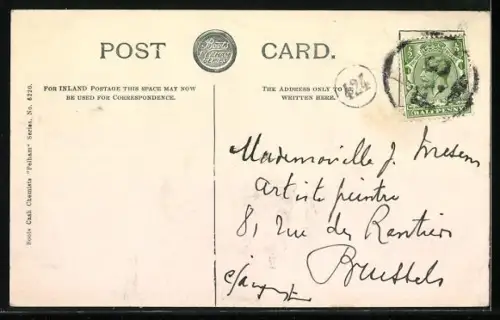 POST CARD.
Boots
For INLAND POSTAGE THIS SPACE MAY NOW
BE USED FOR CORRESPONDENCE.
THE ADDRESS ONLY TO
WRITTEN HERE.
HALFPENNY
Boots Cash Chemists "Pelham" Series, No. 8220.
Mademoiselle J.
Artiste peintre
81, Rue des Rentiers
Brussels